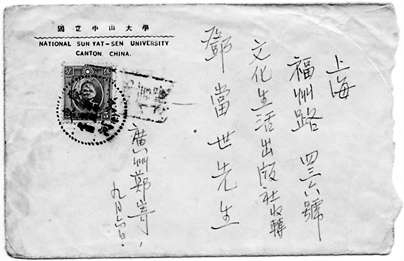 國立中山大學
NATIONAL SUN YAT-SEN UNIVERSITY
CANTON, CHINA.
上海
福州路四三六號
文化生活出版社收轉
鄧當世先生
廣州鄭寄
九月六日